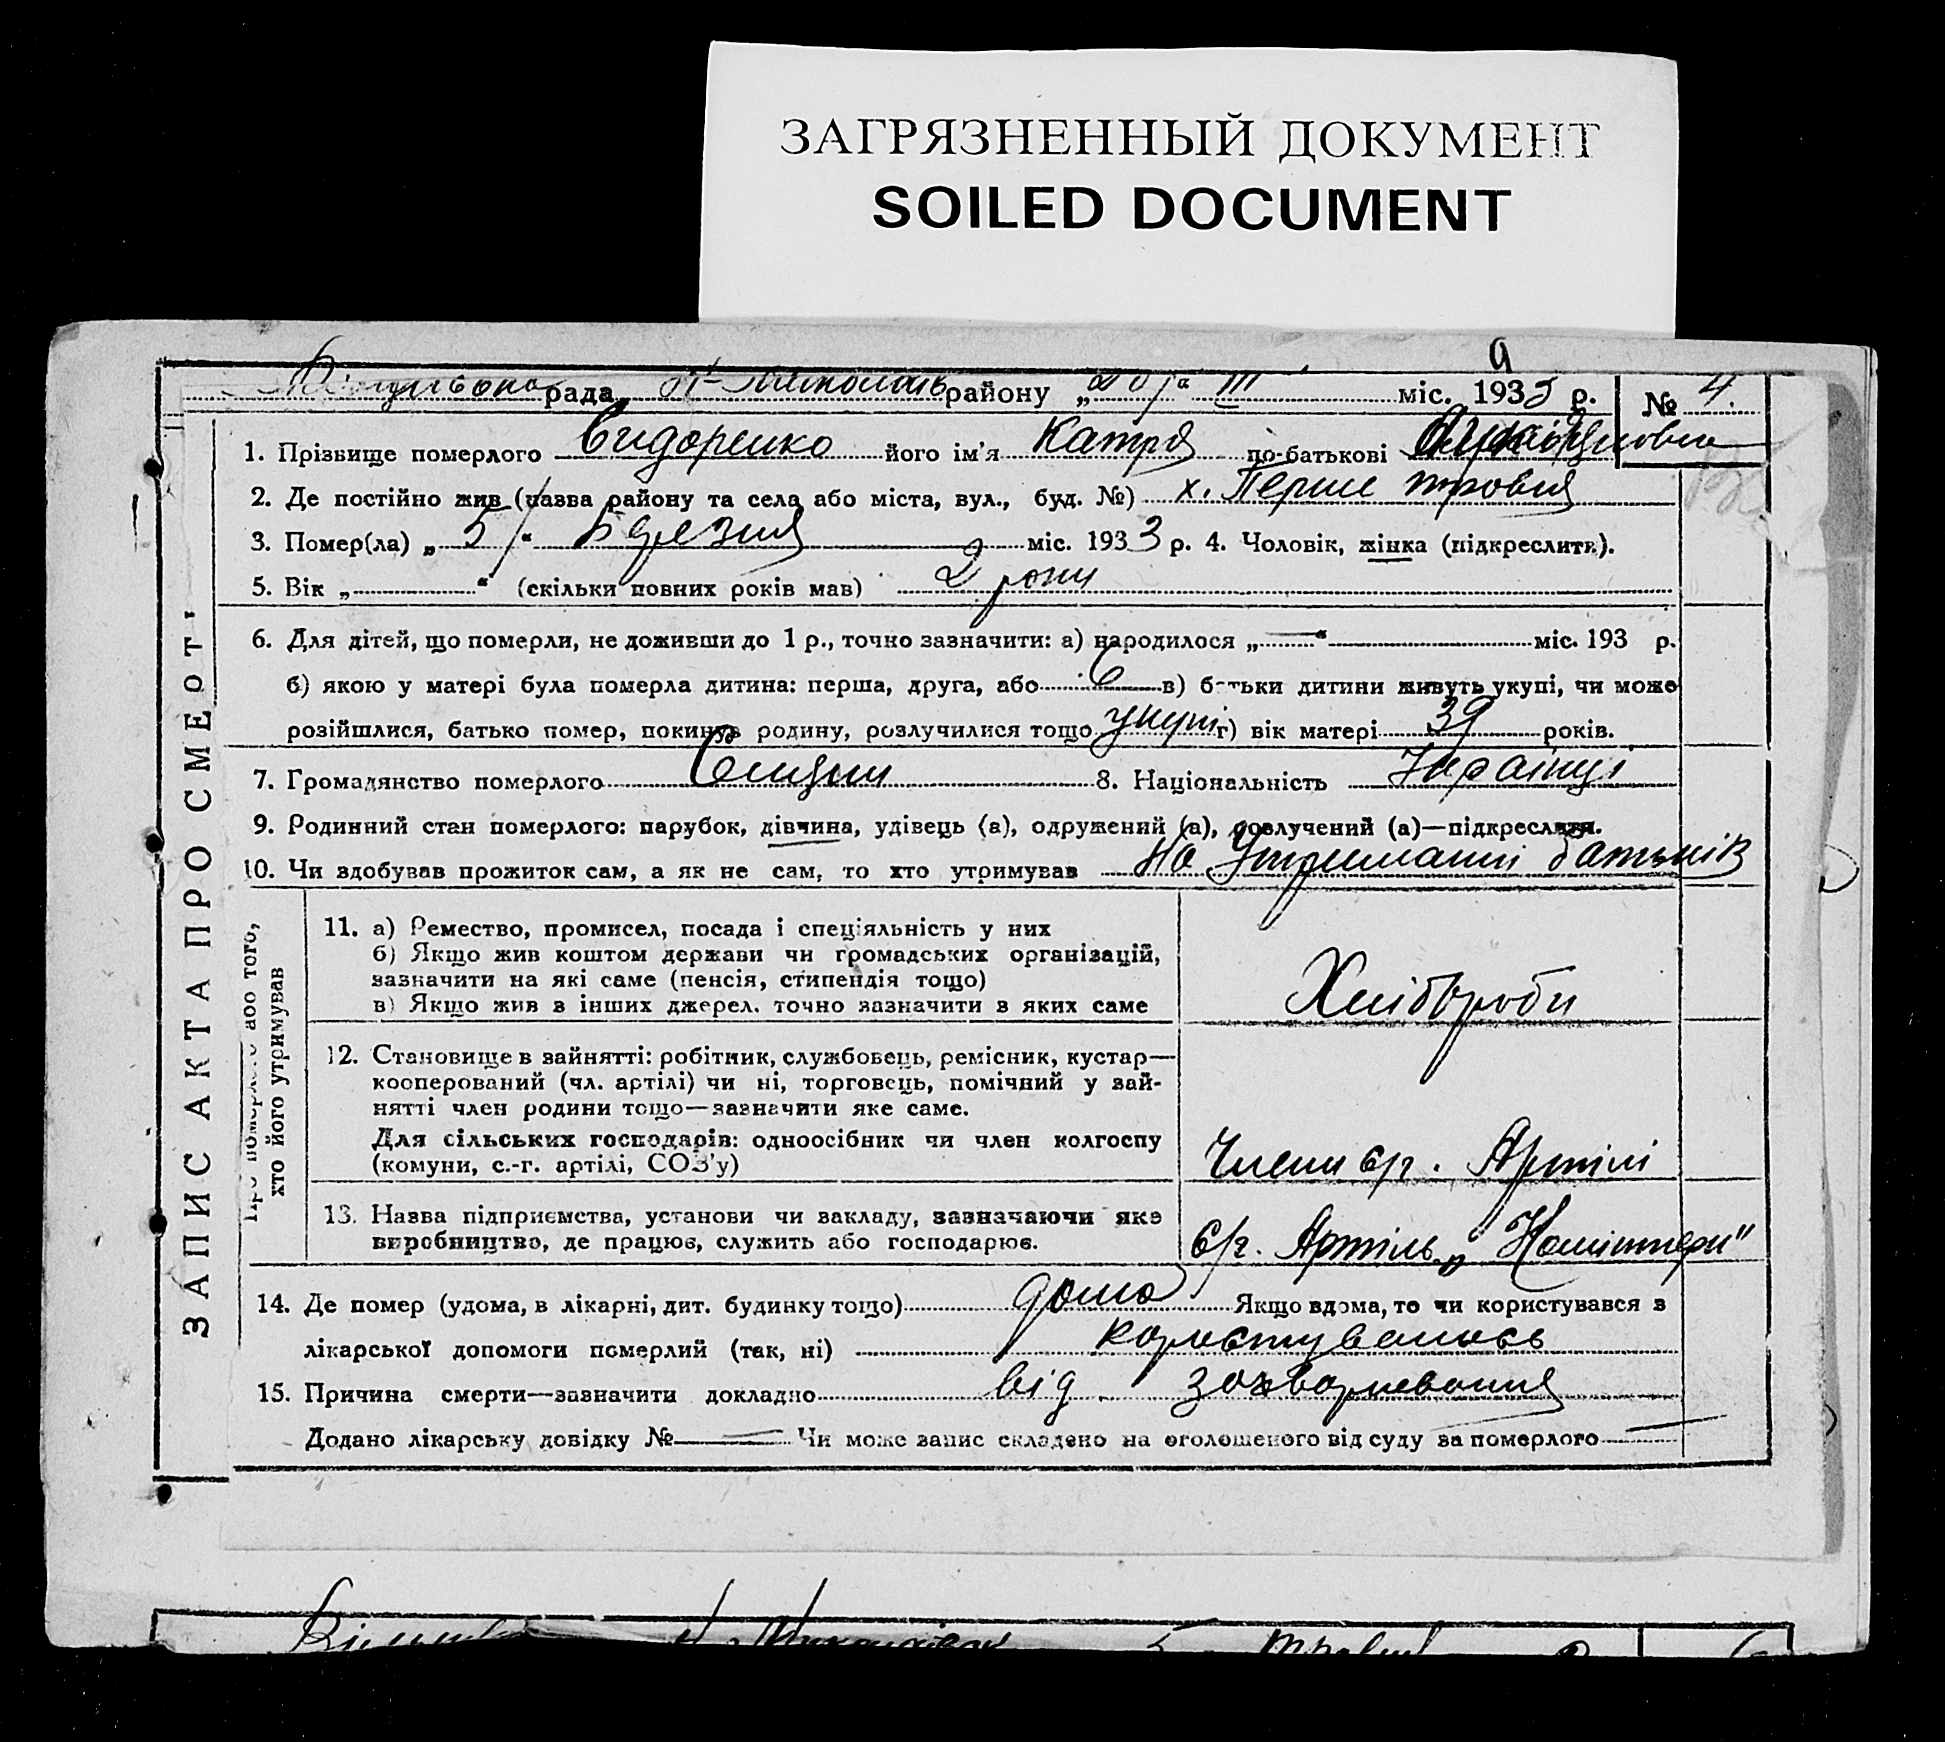 ЗАГРЯЗНЕННЫЙ ДОКУМЕНТ
SOILED DOCUMENT
рада району „20/“ III міс. 1933 р. № 4.
1. Прізвище померлого Сидоренко його ім’я Катря по-батькові
2. Де постійно жив (назва району та села або міста, вул., буд. №) х. Перше травня
3. Помер(ла) „5/“ Березня міс. 1933 р. 4. Чоловік, жінка (підкреслити).
5. Вік „ “ (скільки повних років мав) 2 роки
6. Для дітей, що померли, не доживши до 1 р., точно зазначити: а) народилося „—“ міс. 193 р.
б) якою у матері була померла дитина: перша, друга, або 6 в) батьки дитини живуть укупі, чи може
розійшлися, батько помер, покинув родину, розлучилися тощо укупі г) вік матері 39 років.
7. Громадянство померлого 8. Національність Українці
9. Родинний стан померлого: парубок, дівчина, удівець (а), одружений (а), розлучений (а)—підкреслити.
10. Чи здобував прожиток сам, а як не сам, то хто утримував На Утриманні батьків
ЗАПИС АКТА ПРО СМЕРТЬ
або того,
хто його утримував
11. а) Ремество, промисел, посада і спеціяльність у них
б) Якщо жив коштом держави чи громадських організацій,
зазначити на які саме (пенсія, стипендія тощо)
в) Якщо жив з інших джерел, точно зазначити з яких саме
Хлібороби
12. Становище в зайнятті: робітник, службовець, ремісник, кустар—
кооперований (чл. артілі) чи ні, торговець, помічний у зай-
нятті член родини тощо—зазначити яке саме.
Для сільських господарів: одноосібник чи член колгоспу
(комуни, с.-г. артілі, СОЗ’у)
Члени с/г. Артілі
13. Назва підприємства, установи чи закладу, зазначаючи яке
виробництво, де працює, служить або господарює.
с/г. Артіль „Комінтерн"
14. Де помер (удома, в лікарні, дит. будинку тощо) дома Якщо вдома, то чи користувався з
лікарської допомоги померлий (так, ні) користувалась
15. Причина смерти—зазначити докладно від захворювання
Додано лікарську довідку № — Чи може запис складено на оголошеного від суду за померлого —